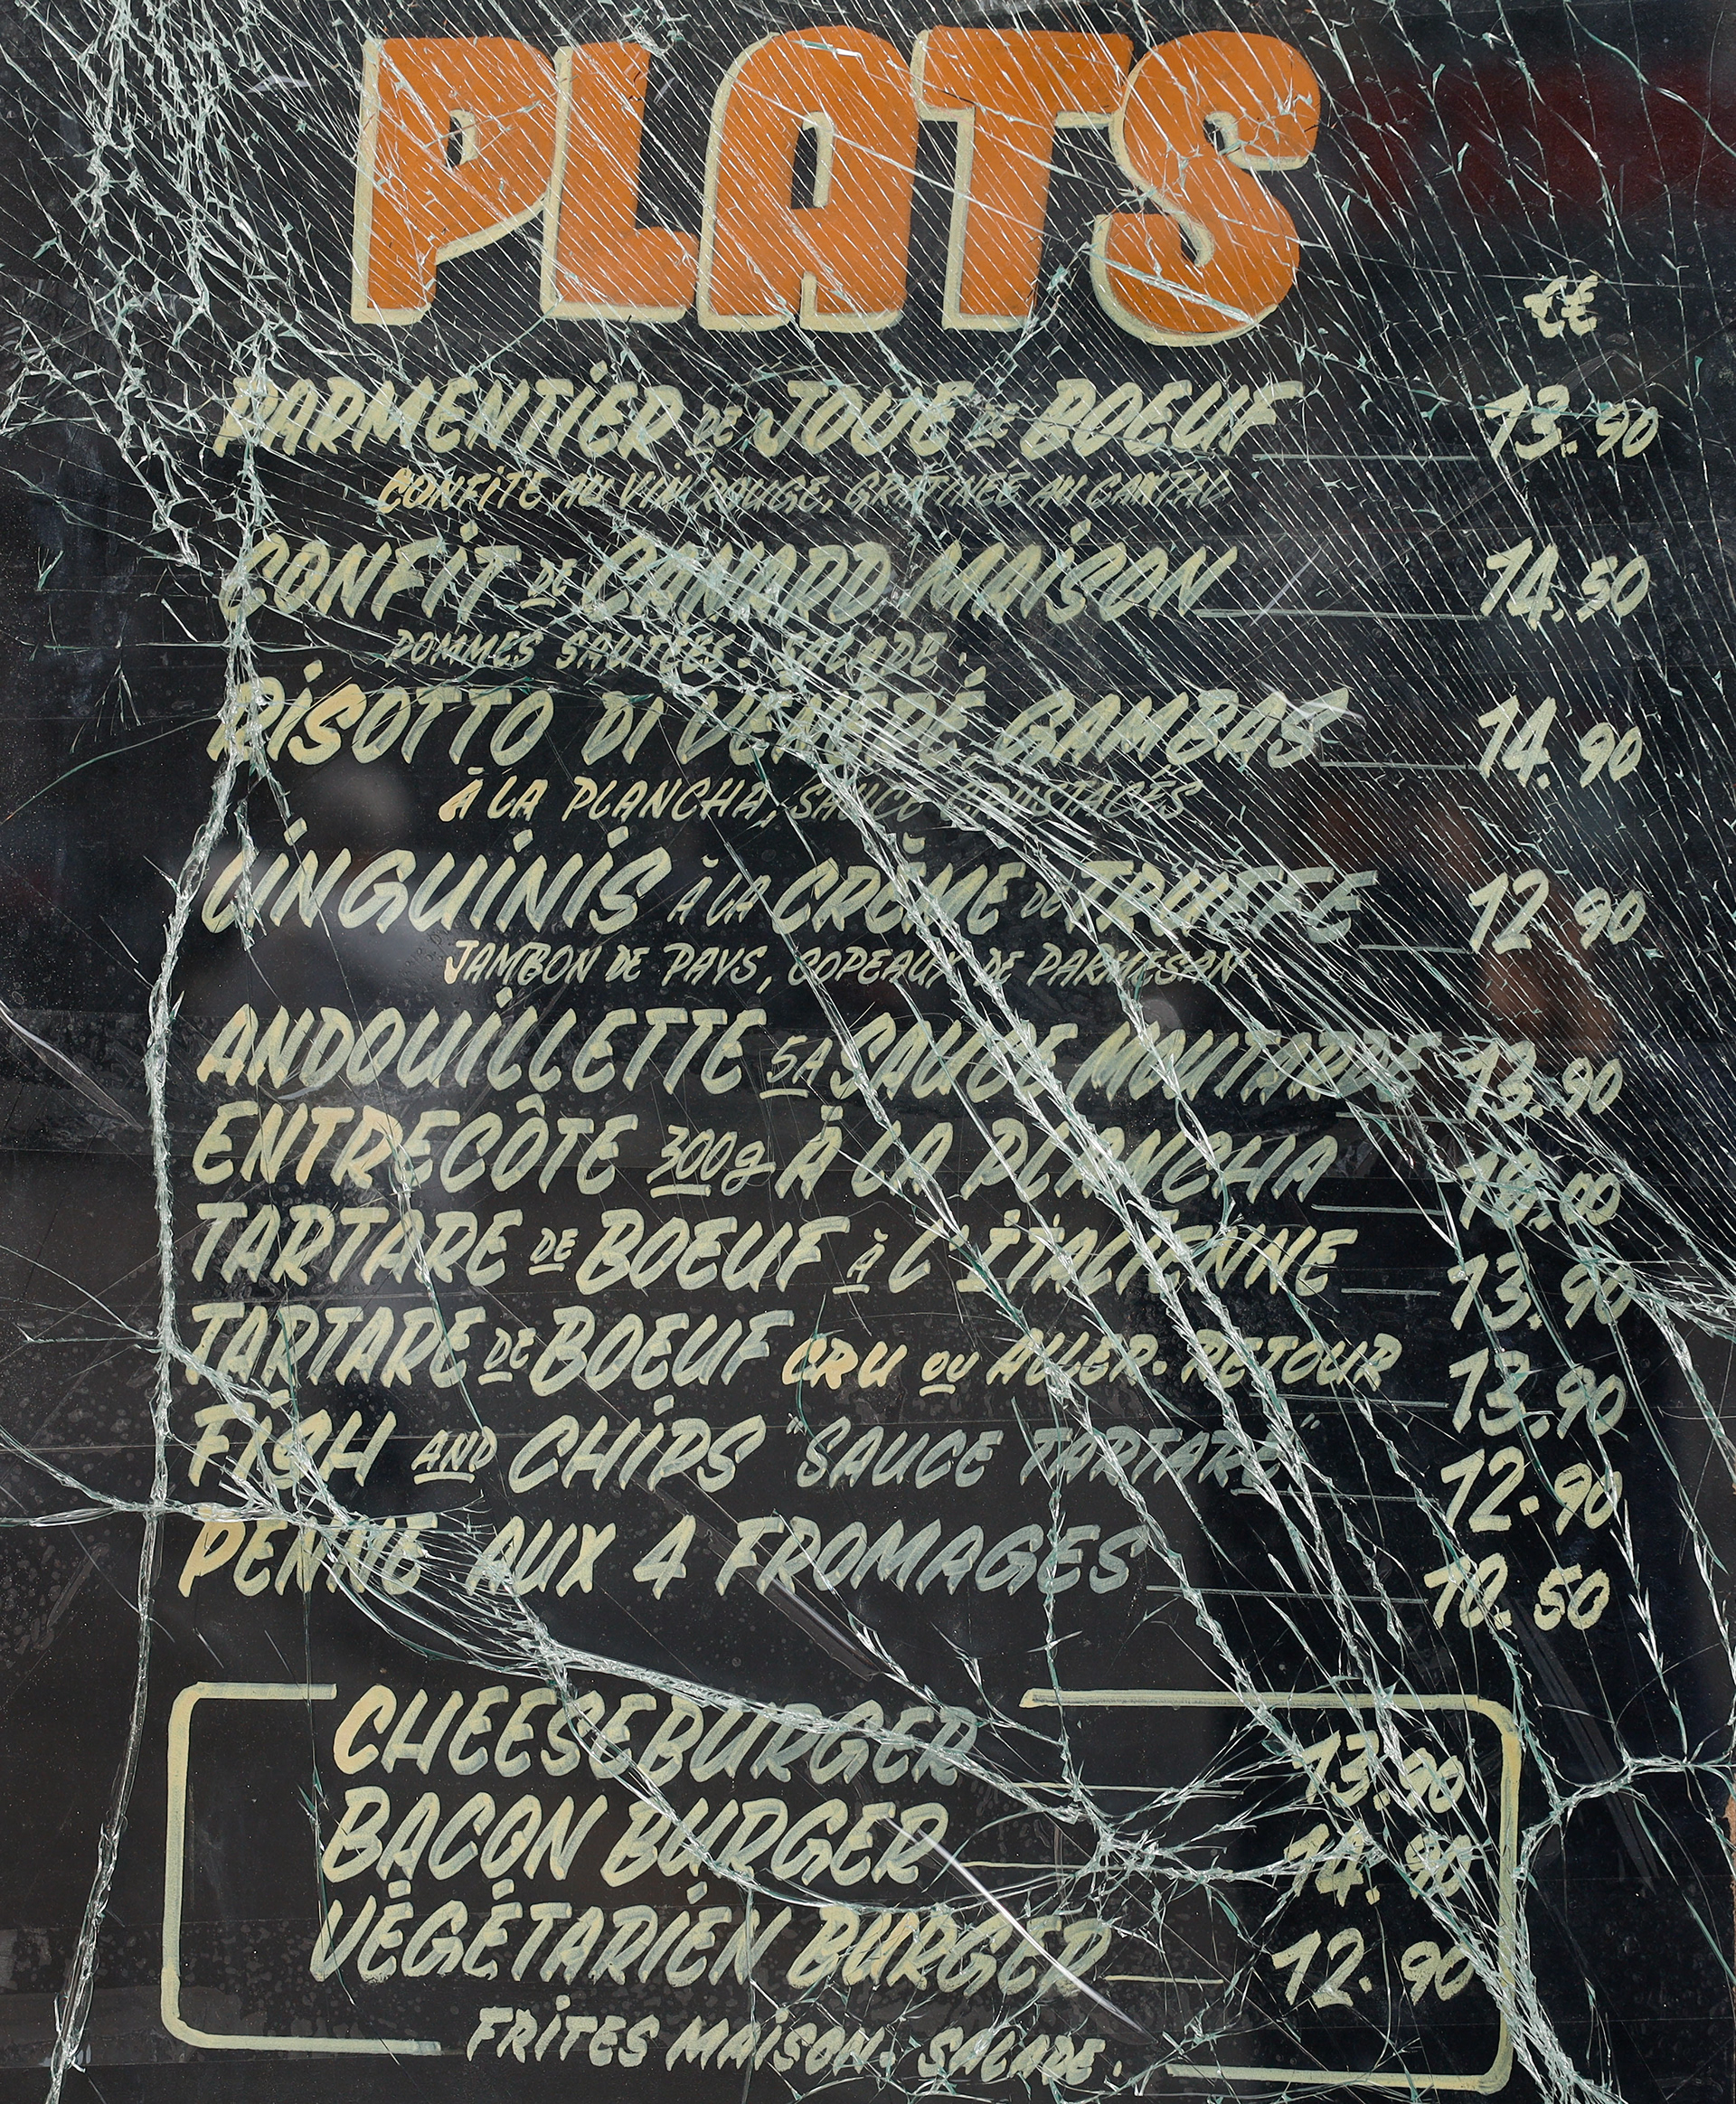 PLATS
€
PARMENTIER DE JOUE DE BOEUF 13.90
CONFITE AU VIN ROUGE, GRATINÉE AU CANTAL
CONFIT DE CANARD MAISON 14.50
POMMES SAUTÉES. SALADE.
RISOTTO DI GAMBAS 14.90
À LA PLANCHA, SAUCE CRUSTACÉS
LINGUINIS À LA CRÈME DE TRUFFE 12.90
JAMBON DE PAYS, COPEAUX DE PARMESAN
ANDOUILLETTE 5A SAUCE MOUTARDE 13.90
ENTRECÔTE 300g À LA PLANCHA
TARTARE DE BOEUF À L'ITALIENNE 13.90
TARTARE DE BOEUF CRU OU ALLER. RETOUR 13.90
FISH AND CHIPS "SAUCE TARTARE" 12.90
PENNE AUX 4 FROMAGES 10.50
CHEESEBURGER 13.90
BACON BURGER 14.90
VÉGÉTARIEN BURGER 12.90
FRITES MAISON. SALADE.